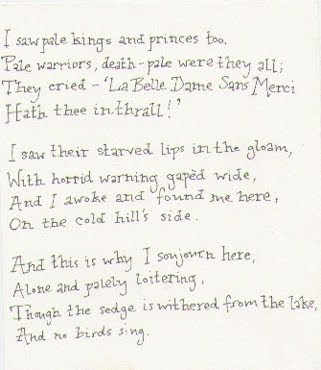 I saw pale kings and princes too,
Pale warriors, death-pale were they all;
They cried - 'La Belle Dame Sans Merci
Hath thee in thrall!'
I saw their starved lips in the gloam,
With horrid warning gaped wide,
And I awoke and found me here,
On the cold hill's side.
And this is why I sojourn here,
Alone and palely loitering,
Though the sedge is withered from the lake,
And no birds sing.